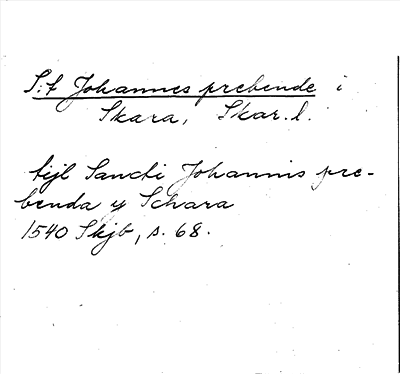 S:t Johannes prebende i
Skara, Skar. l.
tijl Sancti Johannis pre-
benda y Schara
1540 Skjb, s. 68.